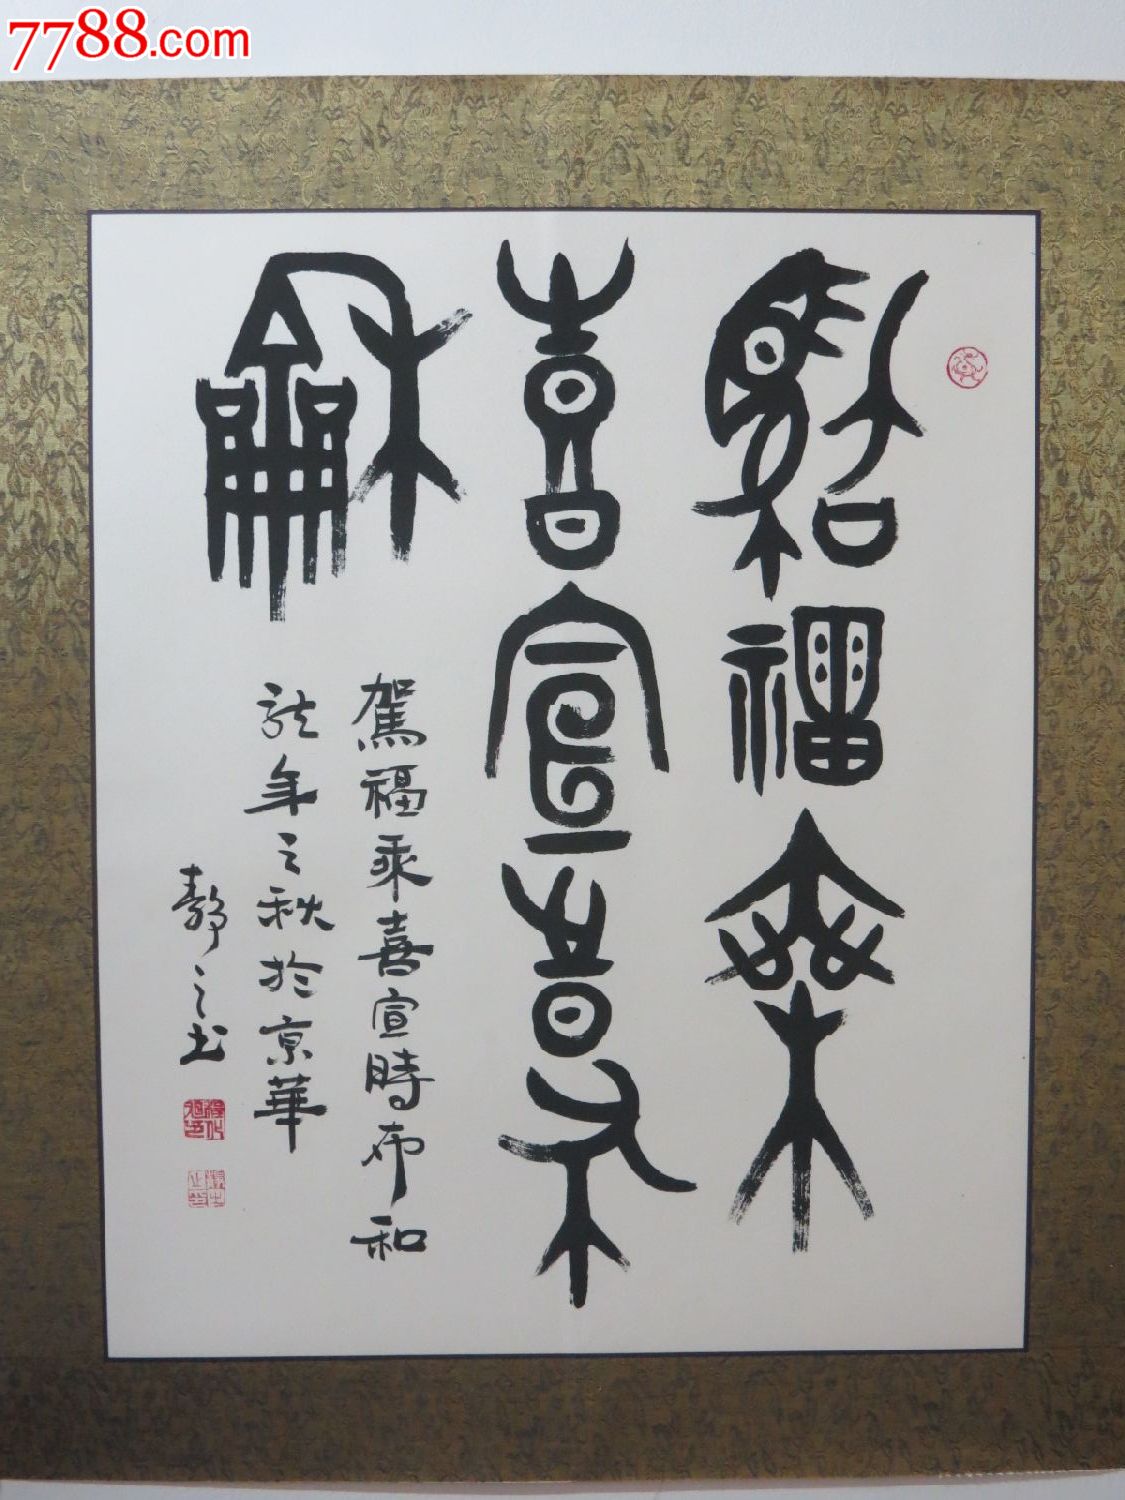 7788.com
駕福乘
喜宣時布
龢
駕福乘喜宣時布和
龍年之秋於京華
靜之書